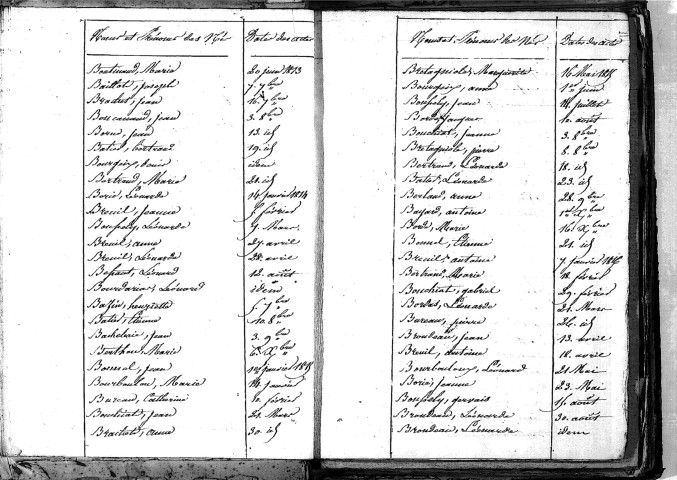 Noms et Prénoms des Nés Date des actes
Bertrand, Marie 20 juin 1813
Baillot, joseph 7. 7bre
Bradut, jean 16. 7bre
Bouccarnaud, jean 3. 8bre
Borne, jean 13. id
Batis, Bertrand 19. id
Bourgoin, denis idem
Bertrand, Marie 21. id
Borie, Léonarde 14 janvier 1814
Breuil, jeanne 5. février
Boupoly, Léonarde 9. Mars
Breuil, anne 27. avril
Breuil, Léonarde 28. avril
Léonard 12. août
Bourdarias, Léonard idem
5. 7bre
Batis, Etienne 10. 8bre
Bachelerie, jean 3. 9bre
Berthou, Marie 6. Xbre
Bonnal, jean janvier 1815
Bourboulou, Marie 14. janvier
Bureau, Catherine 10. février
Bouchiat, jean 21. Mars
anne 30. id
Noms et Prénoms des Nés Date des actes
Bretagnole, Marguerite 16. Mai 1815
Bourgoin, anne 1er juin
Boupoly, jean 14. juillet
Borde, jacques 10. août
Bouchiat, jeanne 3. 8bre
Bretagnole, pierre 8. 8bre
Bertrand, Léonarde 18. id
Batis, Léonarde 23. id
Berland, anne 28. 9bre
Bayard, antoine 1er Xbre
Borde, Marie 16. Xbre
Bonnel, Etienne 21. id
Breuil, antoine 7. janvier 1816
Bertrand, Marie 18. février
Bouchiat, gabriel 29. février
Bordas, Léonarde 21. Mars
Bureau, pierre 26. id
Broudeau, jean 13. avril
Breuil, antoine 18. avril
Bourbouloux, Léonard 21. Mai
Borie, jeanne 23. Mai
Boupoly, gervais 15. août
Léonarde 30. août
Broudeau, Léonarde idem